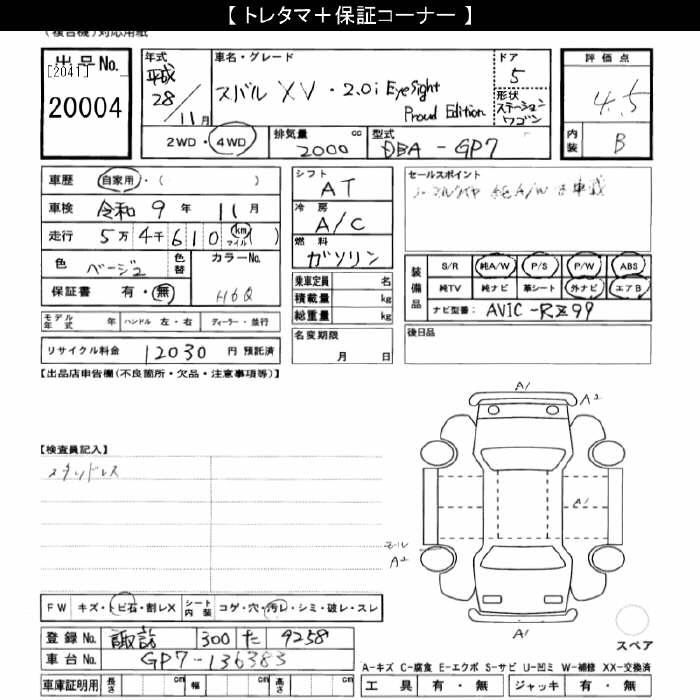 【 トレタマ＋保証コーナー 】
(複合機)対応用紙
出品No.
[2041]
20004
年式
平成
28/11月
車名・グレード
スバル XV ・ 2.0i EyeSight
Proud Edition
ドア
5
形状
ステーション
ワゴン
評価点
4.5
内装
B
2WD・4WD
排気量
2000
cc
型式
DBA - GP7
車歴 自家用・( )
車検 令和 9 年 11 月
走行 5万 4千 6 1 0 (km マイル)
色 ベージュ
色替
カラーNo.
H6Q
保証書 有・無
モデル年式 年 ハンドル 左・右 ディーラー・並行
リサイクル料金 12030 円 預託済
シフト
AT
冷房
A/C
燃料
ガソリン
乗車定員 名
積載量 kg
総重量 kg
名変期限
月 日
セールスポイント
ノーマルタイヤ 純A/W
車載
装備品
S/R 純A/W P/S P/W ABS
純TV 純ナビ 革シート 外ナビ エアB
ナビ型番: AVIC-RZ99
後日品
【出品店申告欄(不良箇所・欠品・注意事項等)】
【検査員記入】
スタッドレス
A1
A2
A1
モール
A2
A1
スペア
FW キズ・トビ石・割レX
シート内装 コゲ・穴・汚レ・シミ・破レ・スレ
登録No. 諏訪 300 た 9258
車台No. GP7-136383
車庫証明用 長さ cm 幅 cm 高さ cm
A-キズ C-腐食 E-エクボ S-サビ U-凹ミ W-補修 XX-交換済
工具 有・無 ジャッキ 有・無